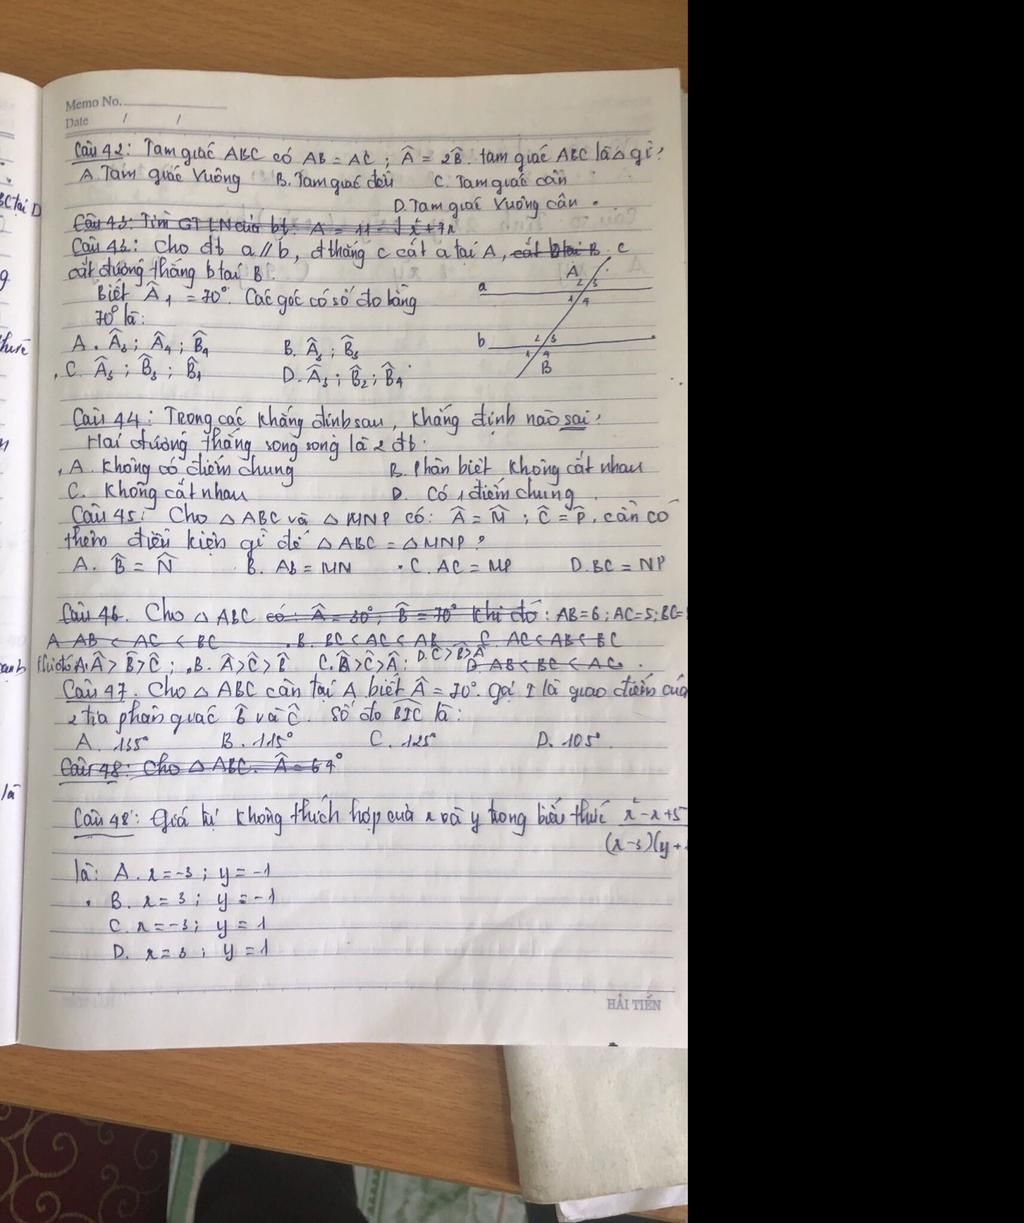 Memo No.
Date / /
Câu 42: Tam giác ABC có AB = AC ; Â = 2B̂. tam giác ABC là △ gì?
A. Tam giác Vuông B. Tam giác đều C. Tam giác cân
D. Tam giác Vuông cân.
BC tại D
Câu 43: Cho đt a // b, đ thẳng c cắt a tại A, cắt b tại B
cắt đường thẳng b tại B.
Biết Â₁ = 70°. Các góc có số đo bằng
70° là:
c
A
a
2 3
1 4
b
2 3
1 4
B
A. Â₃ ; Â₄ ; B̂₄ B. Â₃ ; B̂₃
C. Â₃ ; B̂₃ ; B̂₁ D. Â₃ ; B̂₂ ; B̂₄
Câu 44: Trong các khẳng định sau, khẳng định nào sai?
Hai đường thẳng song song là 2 đt.
A. Không có điểm chung B. Phân biệt không cắt nhau
C. Không cắt nhau D. Có 1 điểm chung
Câu 45: Cho △ ABC và △ MNP có: Â = M̂ ; Ĉ = P̂. cần có
thêm điều kiện gì để △ ABC = △ MNP?
A. B̂ = N̂ B. Ab = MN C. AC = MP D. BC = NP
Câu 46. Cho △ ABC có: Â = 30°; B̂ = 70° Khi đó : AB = 6 ; AC = 5 ; BC =
A AB < AC < BC B. BC < AC < AB C. AC < AB < BC
Khi đó A. Â > B̂ > Ĉ ; B. Â > Ĉ > B̂ C. B̂ > Ĉ > Â ; D. Ĉ > B̂ > Â D AB < BC < AC
Câu 47. Cho △ ABC cân tại A biết Â = 70°. gọi I là giao điểm của
2 tia phân giác B̂ và Ĉ. Số đo BIC là:
A. 135° B. 115° C. 125° D. 105°
Câu 48: Cho △ ABC. Â = 64°
Câu 48: Giá trị không thích hợp của x và y trong biểu thức x² - x + 5
(x-3)(y+
là: A. x = -3 ; y = -1
B. x = 3 ; y = -1
C. x = -3 ; y = 1
D. x = 3 ; y = 1
là
HẢI TIẾN